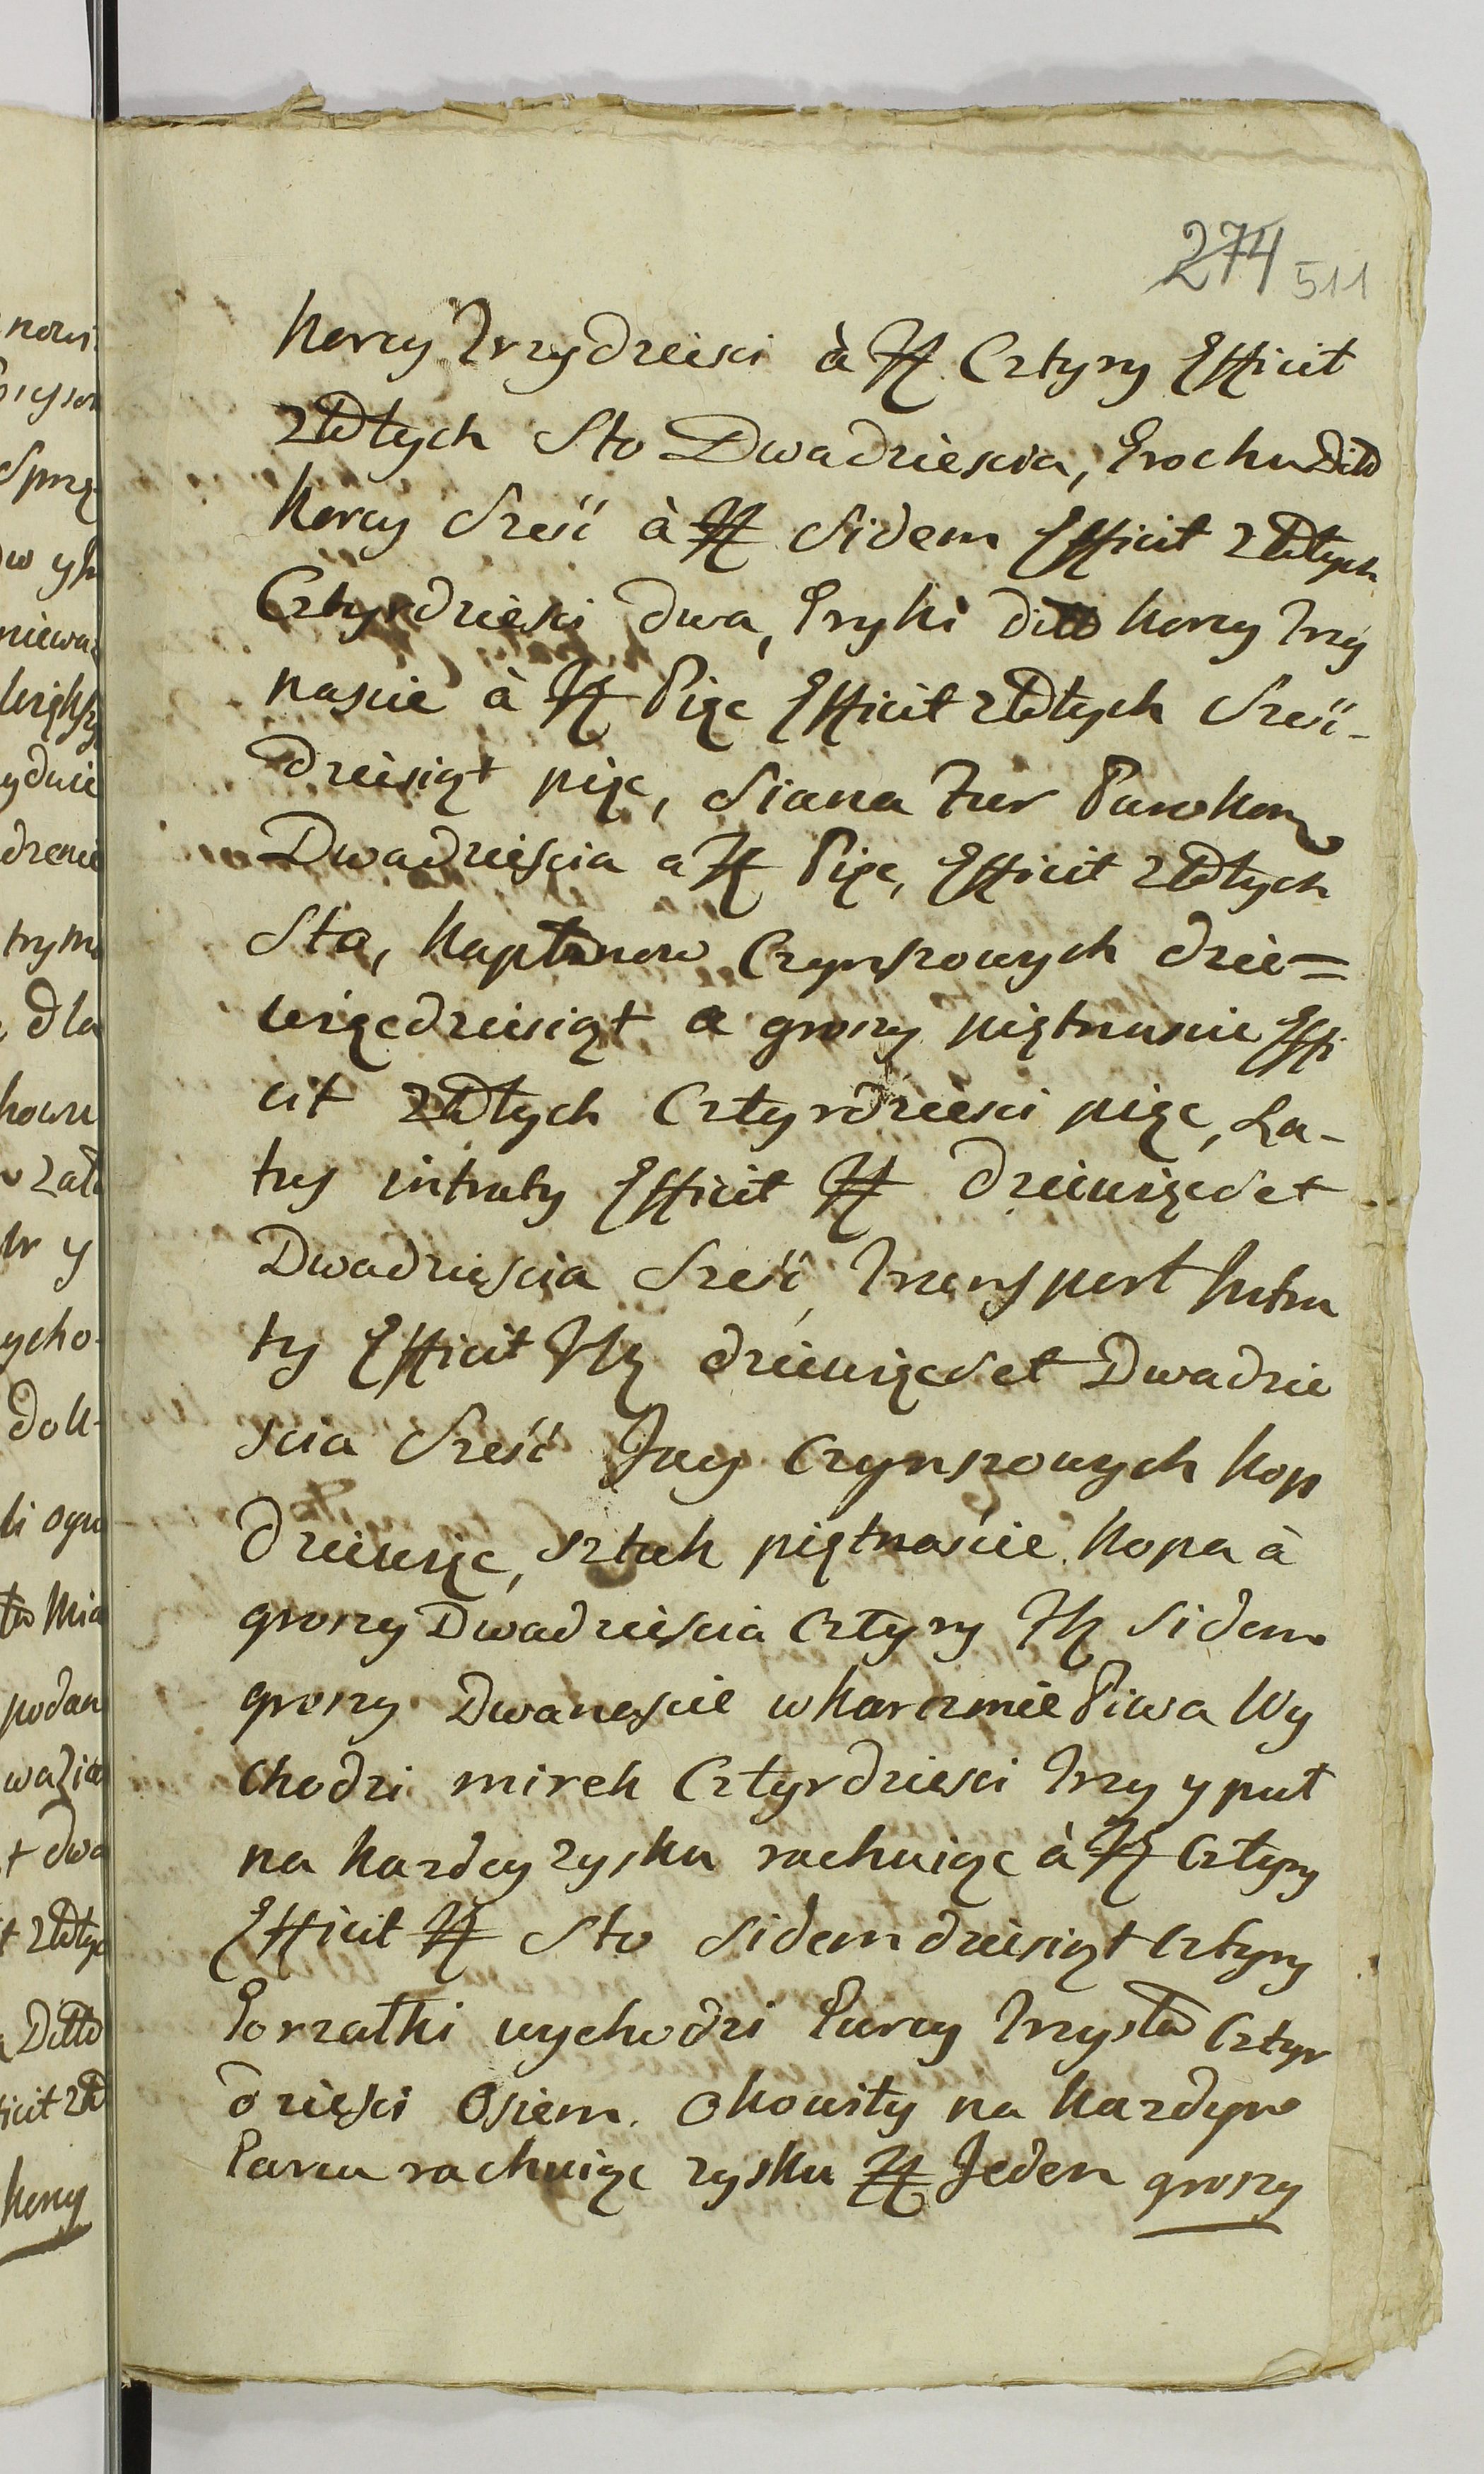 274 511
korcy Trzydziesci à zł Cztyry Efficit
złotych Sto Dwadziescia, Grochu ditto
korcy Sześć à zł Sidem Efficit złotych
Cztyrdziesci dwa, Gryki ditto korcy trzy
nascie à zł Pięc Efficit złotych Sześć-
dziesiąt pięc, Siana Fur Parokon
Dwadziescia a zł Pięc, Efficit złotych
Sto, Kapłonow Czynszowych dzie=
więcdziesiąt a groszy piętnascie Effi
cit złotych Cztyrdziesci pięc, La-
tus intraty Efficit zł dziewięcset
Dwadziescia Sześć, Transport Intra
ty Efficit zł dziewięcset Dwadzie
scia Sześć Jay Czynszowych kop
dziewięc, sztuk piętnaście kopa à
groszy Dwadziescia Cztyry zł Sidem
groszy Dwanascie w karczmie Piwa Wy
chodzi mirek Cztyrdziesci Trzy y puł
na kazdey zysku rachuiąc à zł Cztyry
Efficit zł Sto Sidemdziesiąt Cztyry
Gorzałki wychodzi Garcy Trzysta Cztyr
dziesci Osiem. Okowity na kazdym
Garcu rachuiąc zysku zł Jeden groszy